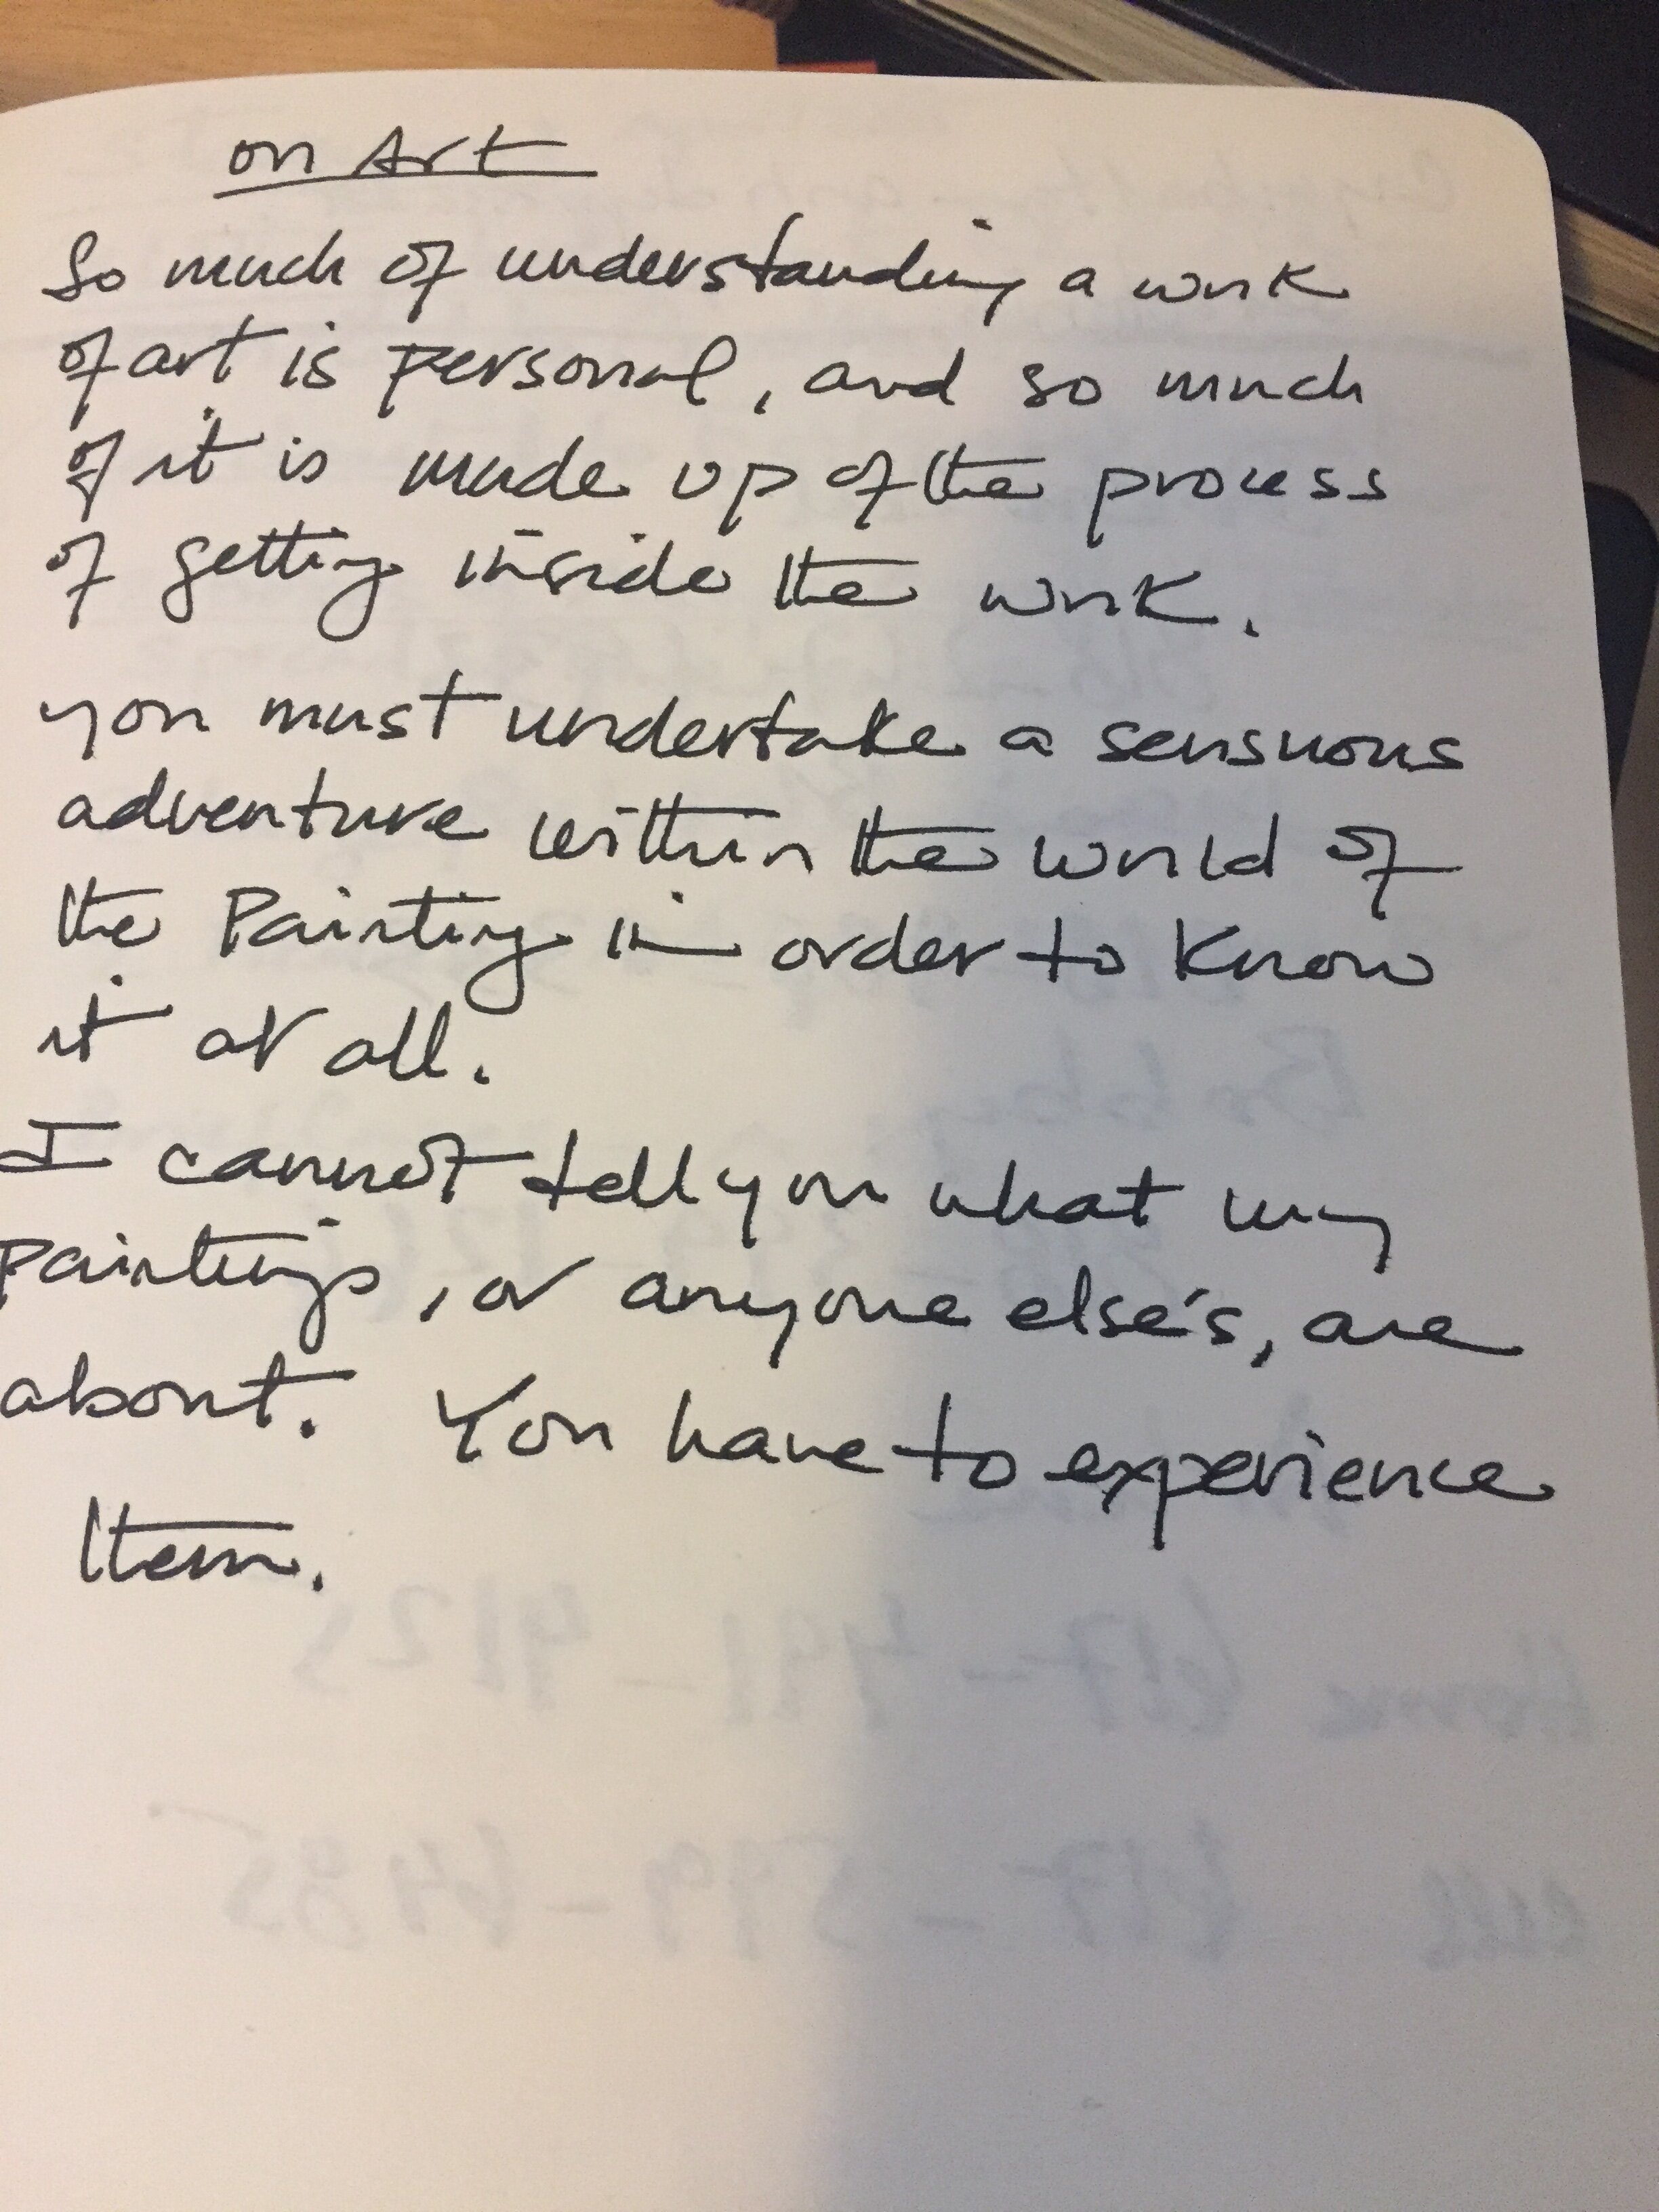 on Art
So much of understanding a work
of art is personal, and so much
of it is made up of the process
of getting inside the work.
you must undertake a sensuous
adventure within the world of
the Painting in order to Know
it at all.
I cannot tell you what my
paintings, or anyone else's, are
about. You have to experience
them.